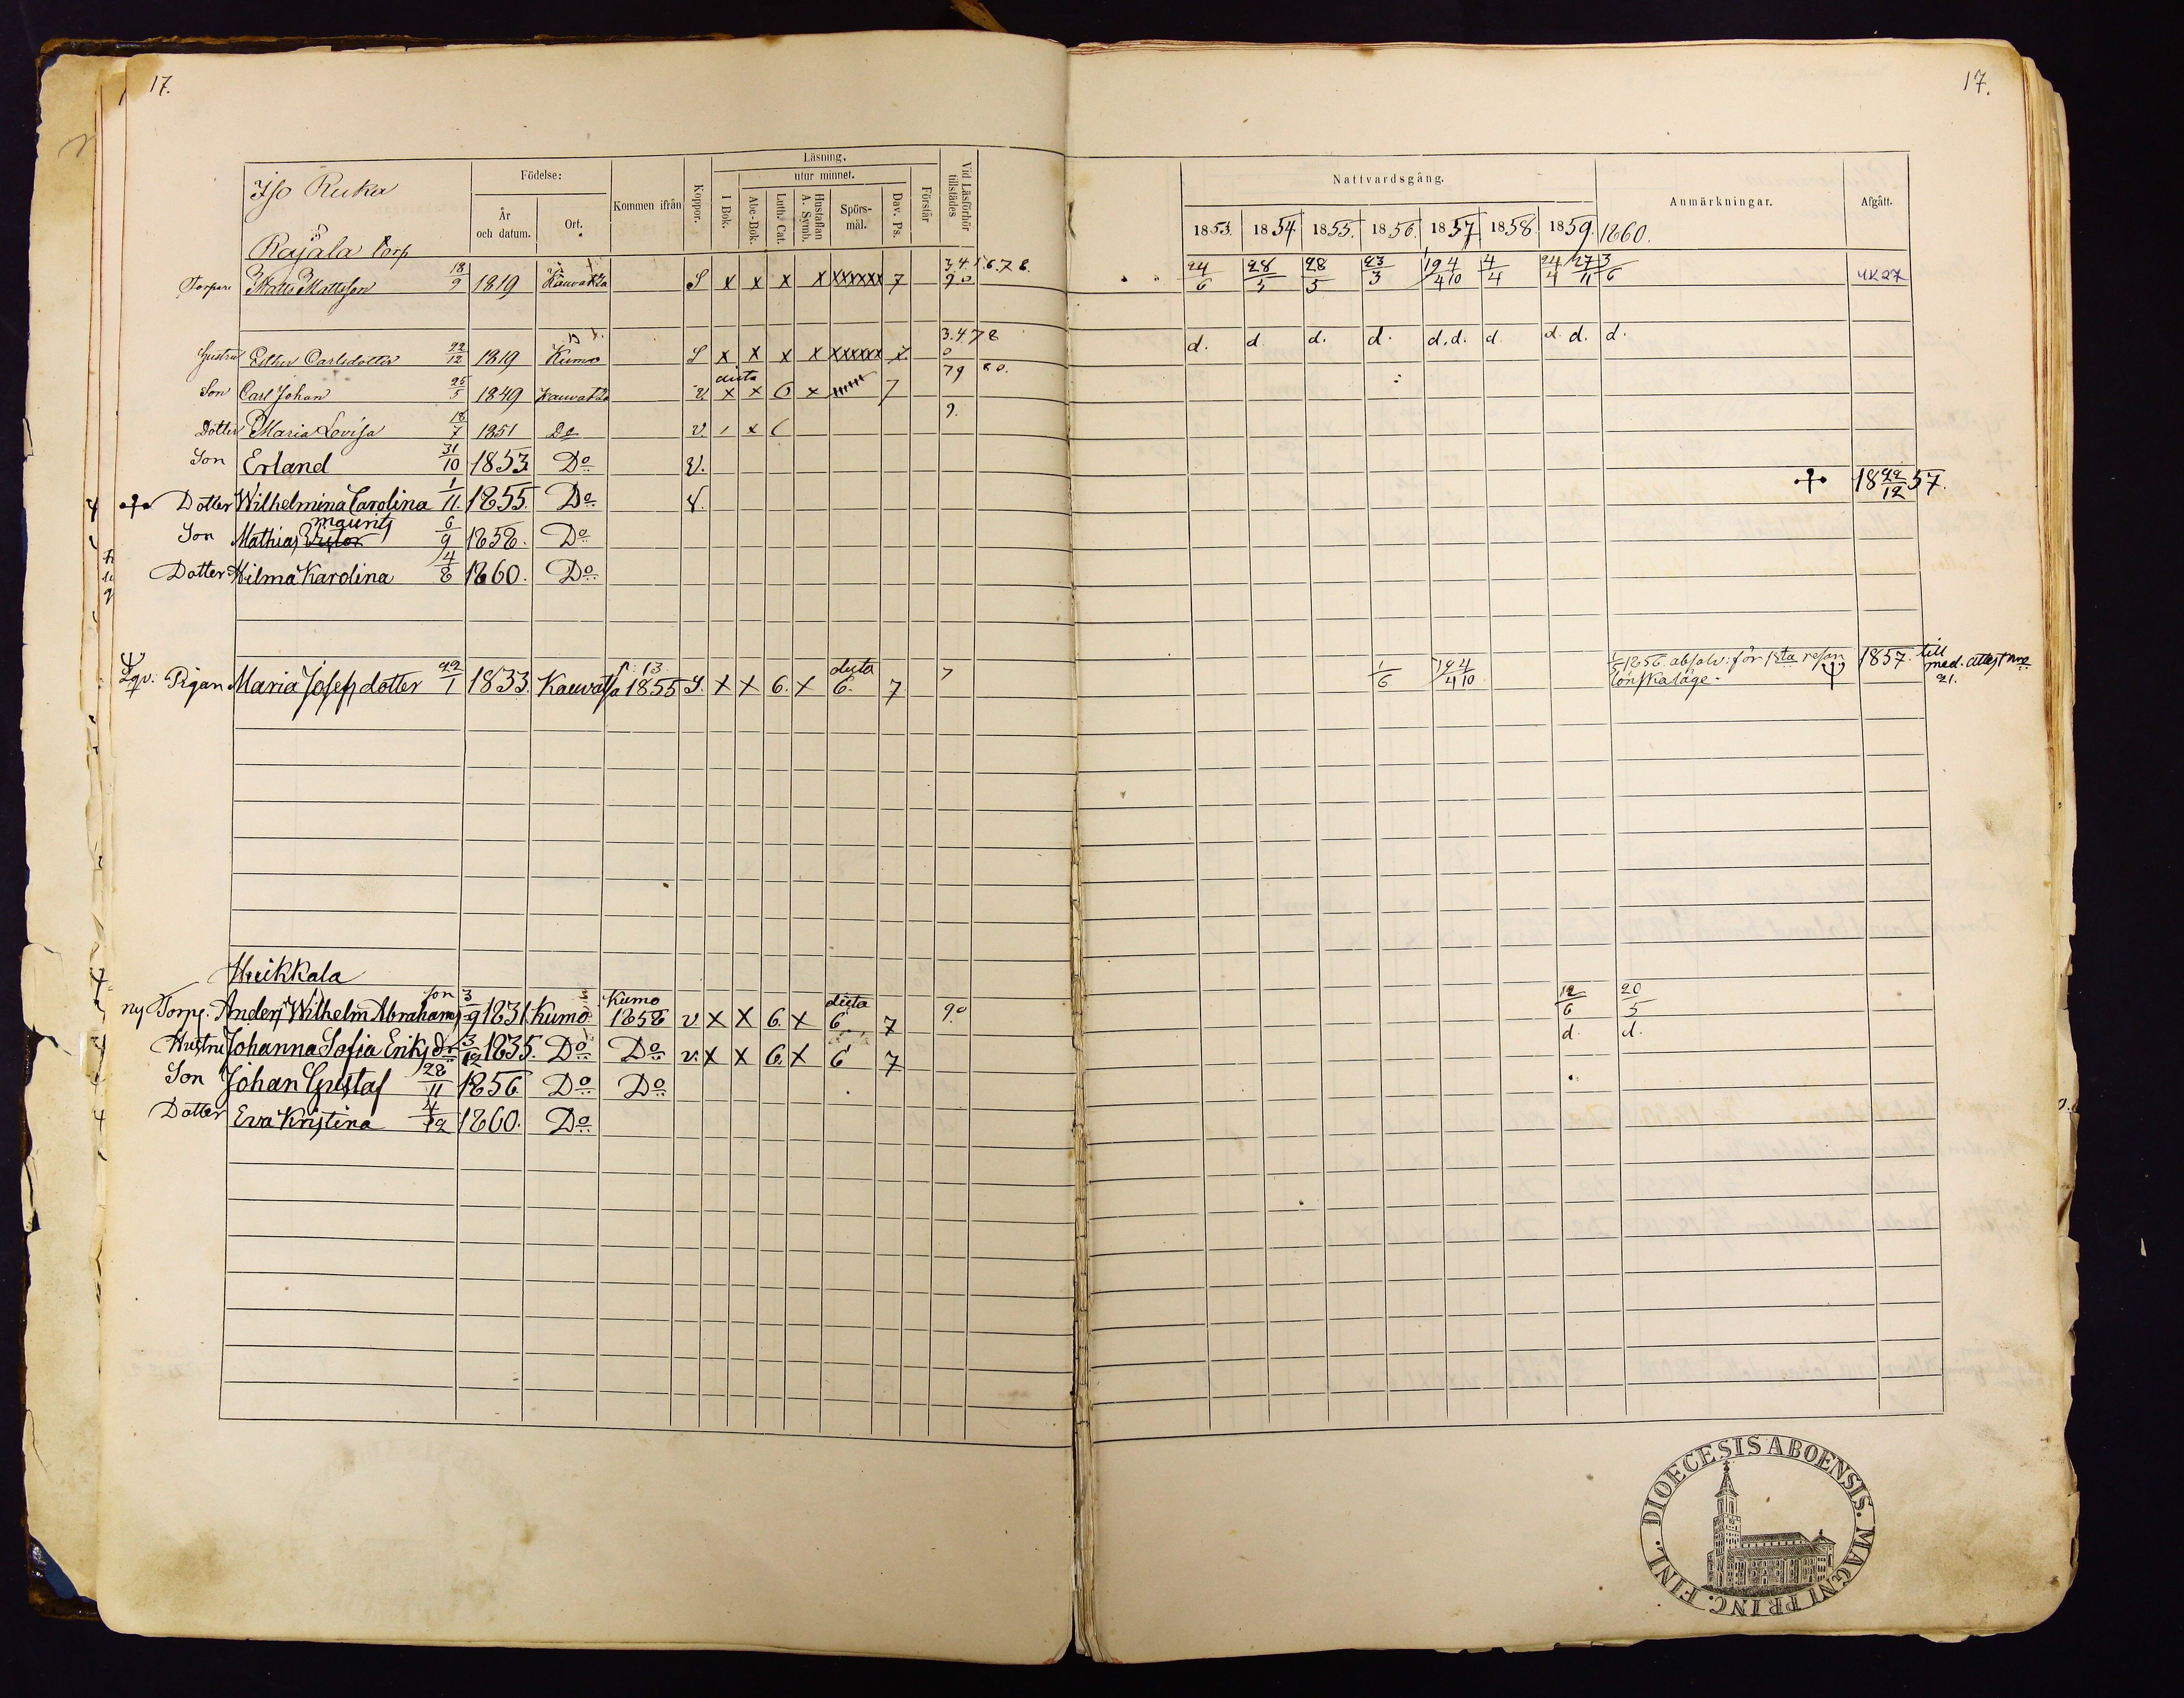 17.
17.
Iso Ruka
Rajala torp
Födelse:
År och datum.
Ort.
Kommen ifrån
Koppor.
Läsning,
utur minnet.
I Bok.
Abc-Bok.
Luth. Cat.
Hustaflan A. Symb.
Spörs-mål.
Dav. Ps.
Förstår
Vid Läsförhör tillstädes
Nattvardsgång.
1853. 1854. 1855. 1856. 1857 1858 1859. 1860.
Anmärkningar.
Afgått.
Torpare Matts Mattsson 18/9 1819 Kauvatsa S x x x x xxxxxx 7 3.4.5.6.7.8. 9 0 24/6 28/5 28/5 23/3 19/4 4/10 4/4 24/4 27/11 3/6 UK 27
Hustru Esther Carlsdotter 22/12 1819 Kumo S x x x x xxxxxx 7. 3.4 7 8 0 d. d. d. d. d. d. d. d. d. d.
Son Carl Johan 25/5 1849 Kauvatsa v x dicta x 6 x 7 79 80.
Dotter Maria Lovisa 18/7 1851 Do v. x 9.
Son Erland 31/10 1853. Do v.
Dotter Wilhelmina Carolina 1/11. 1855. Do v. 18 22/12 57.
Mauritz
Son Mathias Victor 6/9 1858. Do
Dotter Hilma Karolina 4/8 1860. Do
Lqv. Pigan Maria Josefsdotter 22/1 1833. Kauvatsa p. 13. 1855 S. x x 6. x dicta 6. 7 7 1/6 19/4 4/10 1/5 1856. absolv: för 1sta resan lönskaläge. 1857. till med. attest nro 21.
Heikkala
ny Torp. Anders Wilhelm Abrahamsson 3/9 1831. Kumo. Kumo 1858 v x x 6. x dicta 6. 7 9.0 12/6 20/5
Hustru Johanna Sofia Eriksdr 3/12 1835. Do Do v. x x 6. x 6 7 d. d.
Son Johan Gustaf 28/11 1856 Do Do
Dotter Eva Kristina 4/12 1860. Do
DIOECESIS ABOENSIS. MAGNI PRINC. FINL.